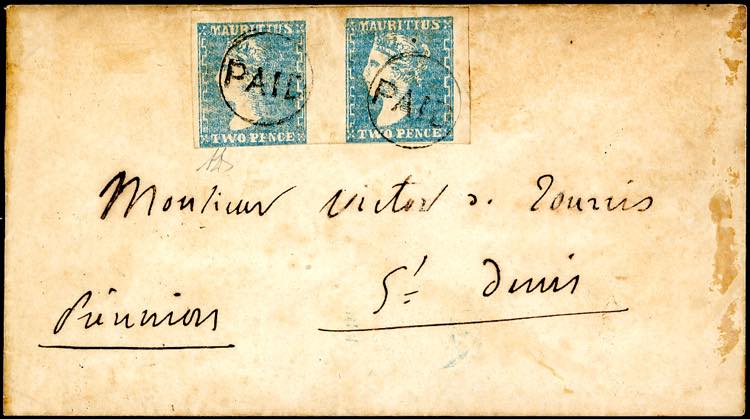 MAURITIUS MAURITIUS
PAID PAID
TWO PENCE TWO PENCE
Monsieur Victor de Tourris
St Denis
Réunion